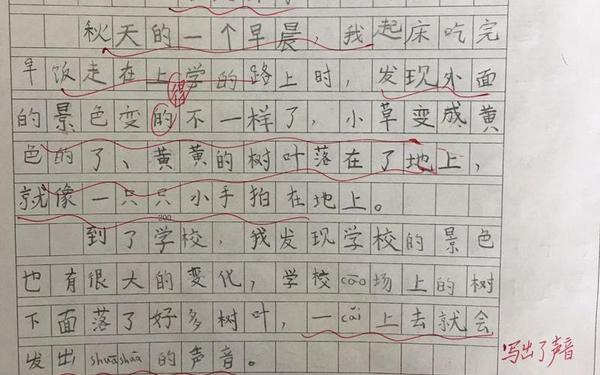 秋天的一个早晨，我起床吃完
早饭走在上学的路上时，发现外面
得
的景色变的不一样了，小草变成黄
色的了、黄黄的树叶落在了地上，
就像一只只小手拍在地上。
200
到了学校，我发现学校的景色
也有很大的变化，学校cāo场上的树
下面落了好多树叶，一cǎi上去就会
发出shuāshuā的声音。
写出了声音